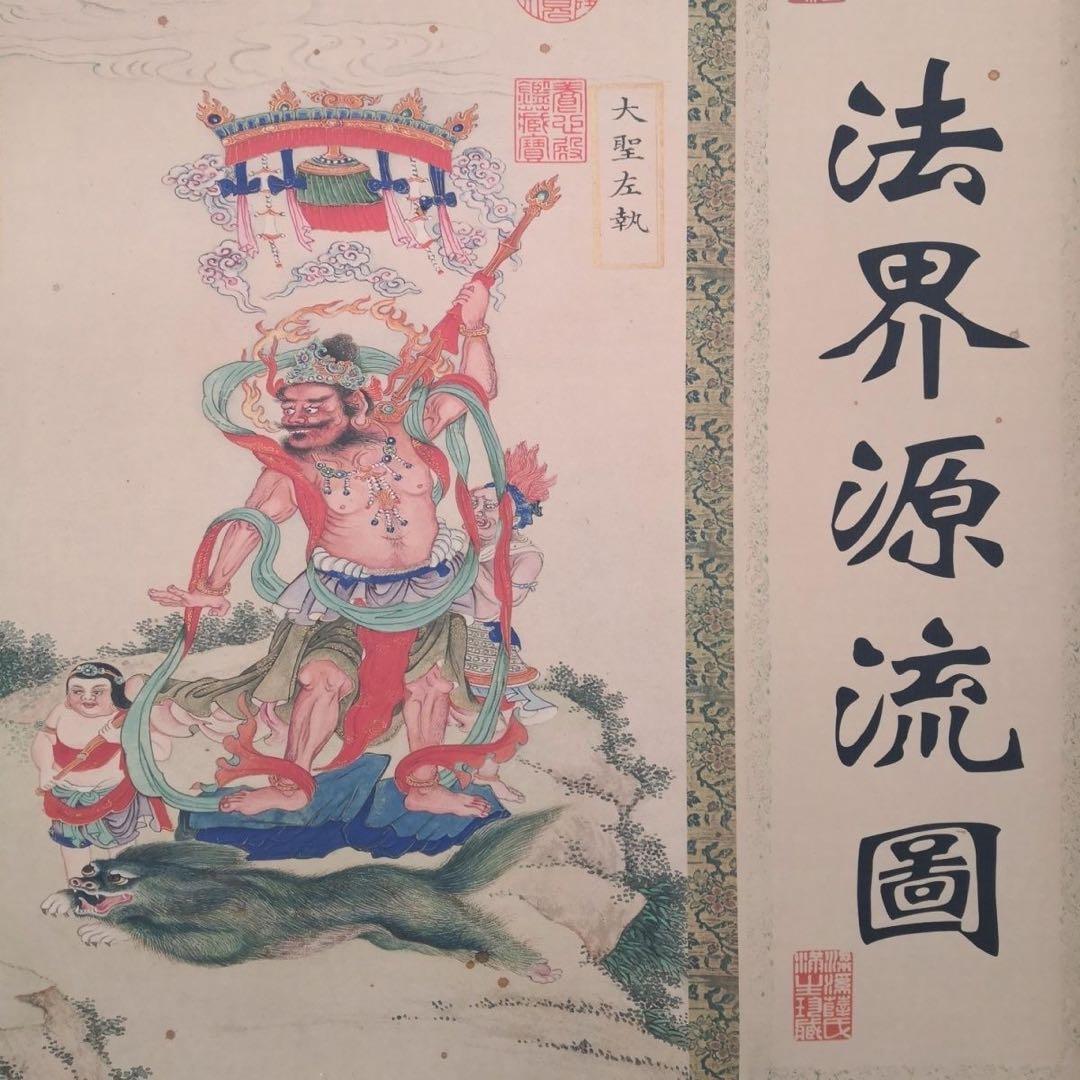 法界源流圖
大聖左執
養心殿
鑑藏寶